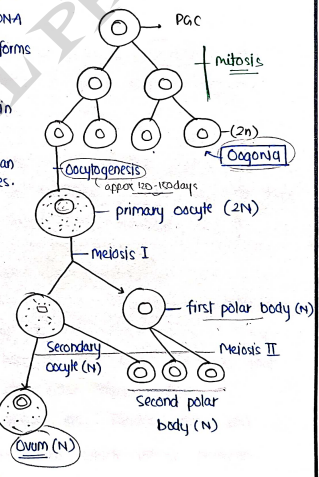 DNA
PGC
forms
mitosis
in
(2n)
Oogonia
an
es.
Oocytogenesis
appox 120-150days
primary oocyte (2N)
Meiosis I
first polar body (N)
Secondary
Meiosis II
oocyte (N)
Second polar
body (N)
Ovum (N)